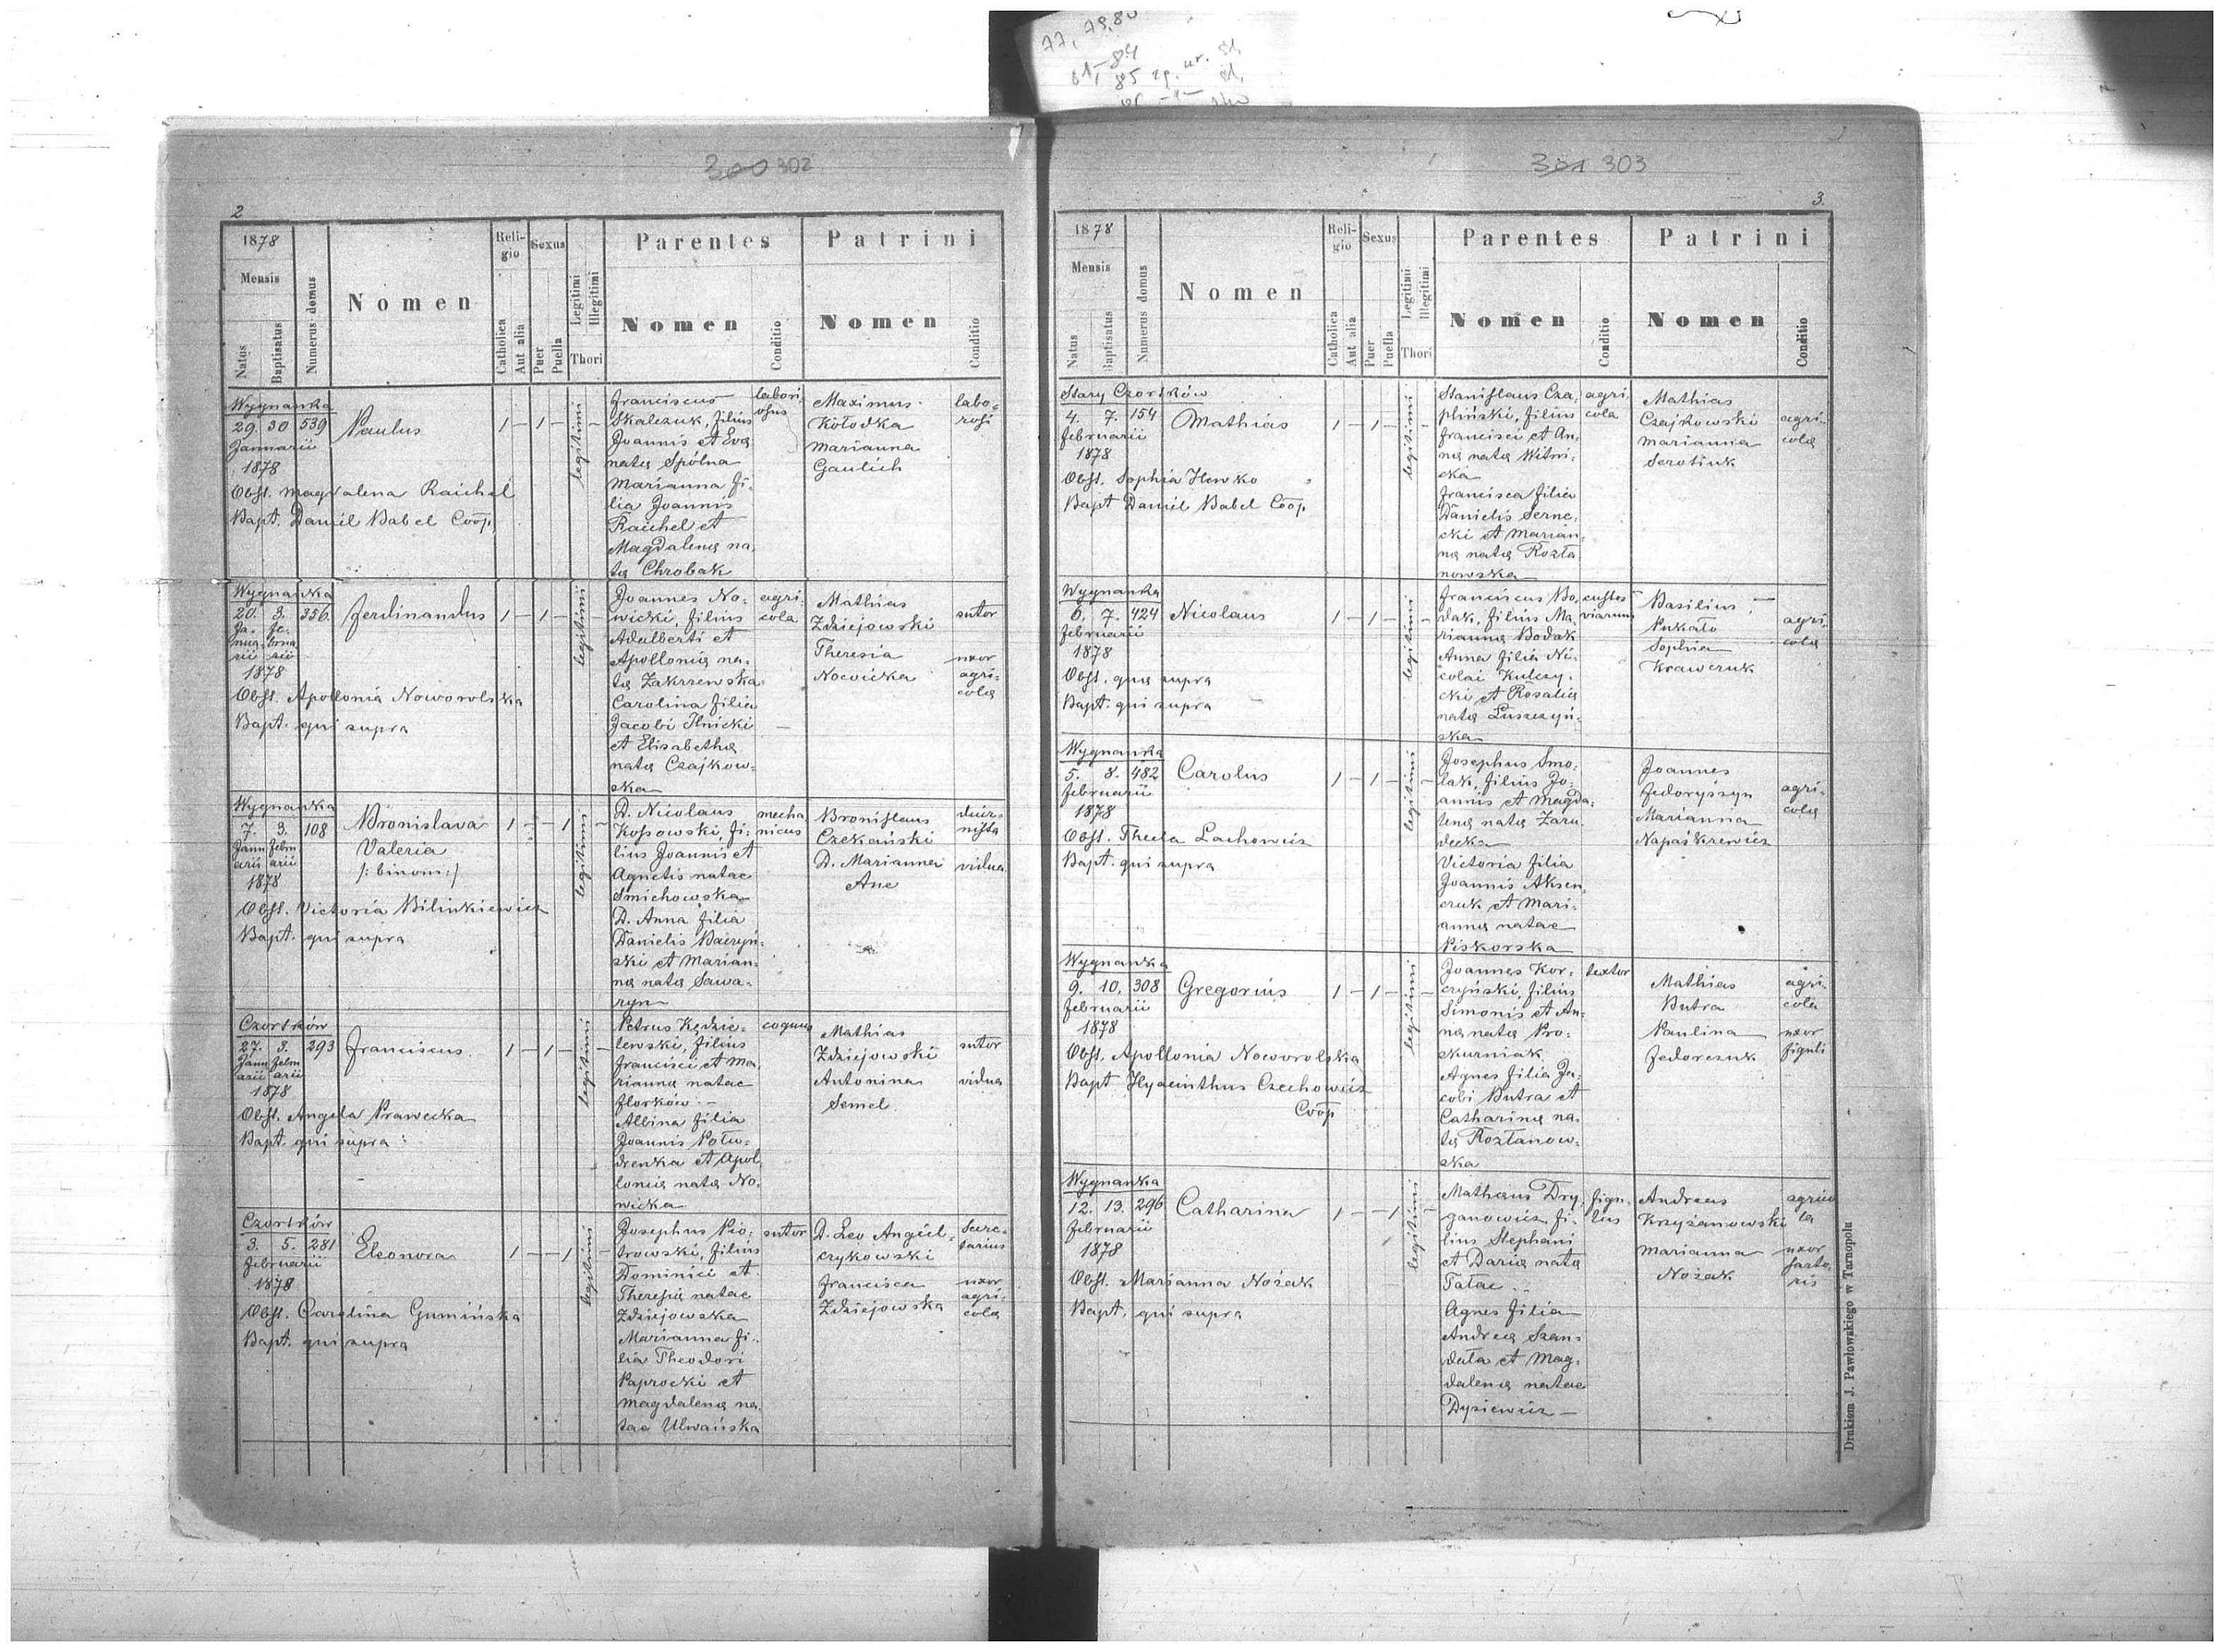 77, 79, 80
300 302
2
1878
Mensis
Natus
Baptisatus
Numerus domus
Nomen
Religio
Catholica
Aut alia
Sexus
Puer
Puella
Legitimi
Illegitimi
Thori
Parentes
Nomen
Conditio
Patrini
Nomen
Conditio
Wygnanka
29. 30 539
Januarii
1878
Paulus
1 – 1 – –
legitimi
Obst. Magdalena Raichel
Bapt. Daniel Babel Coop.
Franciscus
Skalczuk, filius
Joannis et Eva
nata Spólna
Marianna fi-
lia Joannis
Raichel et
Magdalena na-
ta Chrobak
labori-
osus
Maximus
Kołodka
Marianna
Gaulich
labo-
rosi
Wygnanka
20. 3. 356.
Ja- Fe-
nua- brua
rii rii
1878
Ferdinandus
1 – 1 –
legitimi
Obst. Apollonia Noworolska
Bapt. qui supra
Joannes No-
wicki, filius
Adalberti et
Apollonia na-
ta Zakrzewska
Carolina filia
Jacobi Ilnicki
et Elisabetha
nata Czajkow-
ska
agri-
cola
Mathias
Zdziejowski
Theresia
Nowicka
sutor
uxor
agri-
cola
Wygnanka
7. 3. 108
Janu Febru
arii arii
1878
Bronislava
Valeria
/: binom :/
1 – – 1 –
legitimi
Obst. Victoria Bilinkiewicz
Bapt. qui supra
D. Nicolaus
Kossowski, fi-
lius Joannis et
Agnetis natae
Smichowska
D. Anna filia
Danielis Baczyń-
ski et Marian-
na nata Sawa-
ryn
mecha
nicus
Bronislaus
Czekański
D. Marianna
Anc
vidua
Czortków
27. 3. 293
Janu Febru
arii arii
1878
Franciscus.
1 – 1 – –
legitimi
Obst. Angela Prawecka
Bapt. qui supra
Petrus Kędzie-
lewski, filius
Francisci et Ma-
rianna natae
Florków
Albina filia
Joannis Połu-
drenka et Apol-
lonia nata No-
wicka
coquus
Mathias
Zdziejowski
Antonina
Semel.
sutor
vidua
Czortków
3. 5. 281
Februarii
1878
Eleonora
1 – – 1 –
legitimi
Obst. Carolina Gumińska
Bapt. qui supra
Josephus Pio-
trowski, filius
Dominici et
Theresia natae
Zdziejowska
Marianna fi-
lia Theodori
Paprocki et
Magdalena na-
tae Ulwańska
sutor
D. Leo Angiel-
czykowski
Francisca
Zdziejowska
Secre-
tarius
uxor
agri-
cola
301 303
3.
1878
Mensis
Natus
Baptisatus
Numerus domus
Nomen
Religio
Catholica
Aut alia
Sexus
Puer
Puella
Legitimi
Illegitimi
Thori
Parentes
Nomen
Conditio
Patrini
Nomen
Conditio
Stary Czortków
4. 7. 154
Februarii
1878
Mathias
1 – 1 – –
legitimi
Obst. Sophia Hewko
Bapt Daniel Babel Coop.
Stanislaus Cza-
pliński, filius
Francisci et An-
na nata Witwi-
cka
Francisca filia
Danielis Serne-
cki et Marian-
na nata Rozta
nowska
agri-
cola
Mathias
Czajkowski
Marianna
Serotiuk
agri-
cola
Wygnanka
6. 7. 424
Februarii
1878
Nicolaus
1 – 1 – –
legitimi
Obst. qua supra
Bapt. qui supra
Franciscus Bo-
dak, filius Ma-
rianna Bodak
Anna filia Ni-
colai Kulczy-
cki et Rosalia
nata Luszczyń-
ska
custos
viarum
Basilius
Pukało
Sophia
Krawczuk
agri-
cola
Wygnanka
5. 8. 482
Februarii
1878
Carolus
1 – 1 – –
legitimi
Obst. Thecla Lachowicz
Bapt. qui supra
Josephus Smo-
lak, filius Jo-
annis et Magda-
lena nata Zaru-
decka
Victoria filia
Joannis Aksen-
czuk et Mari-
anna natae
Piskorska
Joannes
Fedoryszyn
Marianna
Napaśkrewicz
agri-
cola
Wygnanka
9. 10. 308
Februarii
1878
Gregorius
1 – 1 – –
legitimi
Obst. Apollonia Noworolska
Bapt Hyacinthus Czechowicz
Coop
Joannes Kor-
czyński, filius
Simonis et An-
na nata Pro-
skurniak
Agnes filia Ja-
cobi Butra et
Catharina na-
ta Roztanow-
ska
textor
Mathias
Butra
Paulina
Fedorczuk
agri-
cola
uxor
figuli
Wygnanka
12. 13. 296
Februarii
1878
Catharina
1 – – 1 –
legitimi
Obst. Marianna Nożak
Bapt. qui supra
Mathaus Dry-
ganowicz, fi-
lius Stephani
et Daria nata
Tatae
Agnes filia
Andrea Szan-
dała et Mag-
dalena natae
Dyziewicz –
figu-
lus
Andreas
Krzyżanowski
Marianna
Nożak
agrico
la
uxor
sarto-
ris
Drukiem J. Pawłowskiego w Tarnopolu